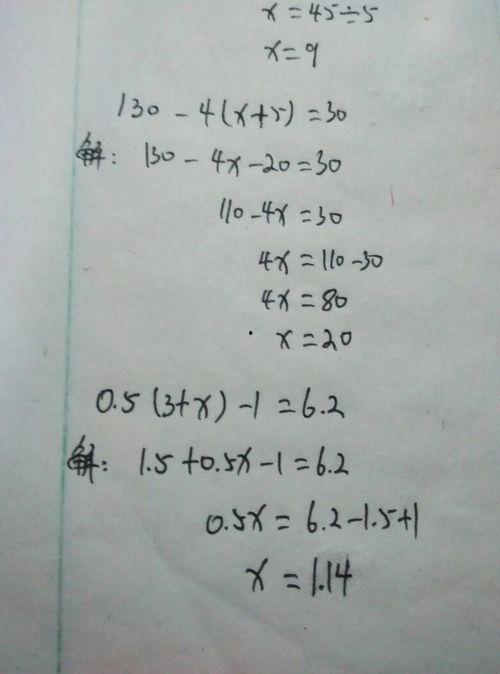 x=45÷5
x=9
130-4(x+5)=30
解: 130-4x-20=30
110-4x=30
4x=110-30
4x=80
x=20
0.5(3+x)-1=6.2
解: 1.5+0.5x-1=6.2
0.5x=6.2-1.5+1
x=1.14